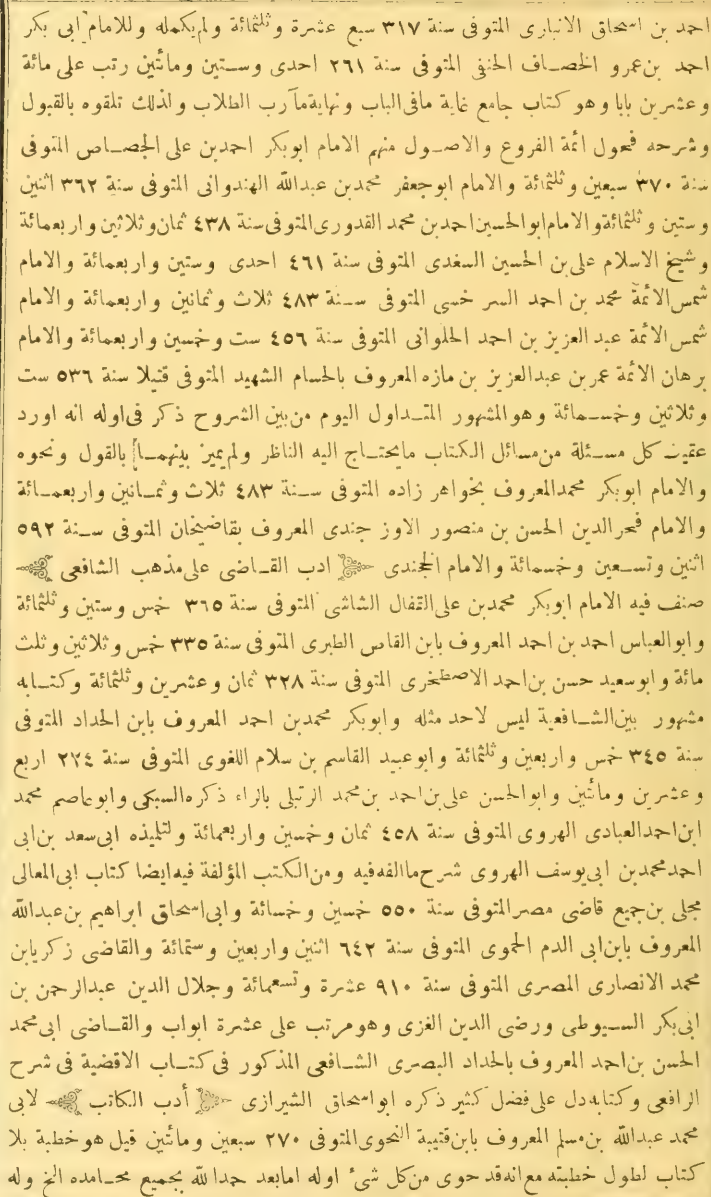 احمد بن اسحاق الانبارى المتوفى سنة ٣١٧ سبع عشرة وثلثمائة ولم يكمله وللامام ابى بكر
احمد بن عمرو الخصاف الحنفى المتوفى سنة ٢٦١ احدى وستين ومائتين رتب على مائة
وعشرين بابا وهو كتاب جامع غاية مافى الباب ونهاية مآرب الطلاب ولذلك تلقوه بالقبول
وشرحه فحول ائمة الفروع والاصول منهم الامام ابوبكر احمد بن على الجصاص المتوفى
سنة ٣٧٠ سبعين وثلثمائة والامام ابوجعفر محمد بن عبدالله الهندوانى المتوفى سنة ٣٦٢ اثنين
وستين وثلثمائة والامام ابوالحسين احمد بن محمد القدورى المتوفى سنة ٤٣٨ ثمان وثلاثين واربعمائة
وشيخ الاسلام على بن الحسين السغدى المتوفى سنة ٤٦١ احدى وستين واربعمائة والامام
شمس الائمة محمد بن احمد السرخسى المتوفى سنة ٤٨٣ ثلاث وثمانين واربعمائة والامام
شمس الائمة عبد العزيز بن احمد الحلوانى المتوفى سنة ٤٥٦ ست وخمسين واربعمائة والامام
برهان الائمة عمر بن عبدالعزيز بن مازه المعروف بالحسام الشهيد المتوفى قتيلا سنة ٥٣٦ ست
وثلاثين وخمسمائة وهو المشهور المتداول اليوم من بين الشروح ذكر فى اوله انه اورد
عقيب كل مسئلة من مسائل الكتاب مايحتاج اليه الناظر ولم يميز بينهما بالقول ونحوه
والامام ابوبكر محمد المعروف بخواهر زاده المتوفى سنة ٤٨٣ ثلاث وثمانين واربعمائة
والامام فخرالدين الحسن بن منصور الاوزجندى المعروف بقاضيخان المتوفى سنة ٥٩٢
اثنين وتسعين وخمسمائة والامام الخجندى ﴿ ادب القاضى على مذهب الشافعى ﴾
صنف فيه الامام ابوبكر محمد بن على القفال الشاشى المتوفى سنة ٣٦٥ خمس وستين وثلثمائة
وابوالعباس احمد بن احمد المعروف بابن القاص الطبرى المتوفى سنة ٣٣٥ خمس وثلاثين وثلث
مائة وابوسعيد حسن بن احمد الاصطخرى المتوفى سنة ٣٢٨ ثمان وعشرين وثلثمائة وكتابه
مشهور بين الشافعية ليس لاحد مثله وابوبكر محمد بن احمد المعروف بابن الحداد المتوفى
سنة ٣٤٥ خمس واربعين وثلثمائة وابوعبيد القاسم بن سلام اللغوى المتوفى سنة ٢٢٤ اربع
وعشرين ومائتين وابوالحسن على بن احمد بن محمد الزبيلى بالزاء ذكره السبكى وابوعاصم محمد
ابن احمد العبادى الهروى المتوفى سنة ٤٥٨ ثمان وخمسين واربعمائة ولتلميذه ابى سعد بن ابى
احمد محمد بن ابى يوسف الهروى شرح ماالفه فيه ومن الكتب المؤلفة فيه ايضا كتاب ابى المعالى
مجلى بن جميع قاضى مصر المتوفى سنة ٥٥٠ خمسين وخمسائة وابى اسحاق ابراهيم بن عبدالله
المعروف بابن ابى الدم الحموى المتوفى سنة ٦٤٢ اثنين واربعين وستمائة والقاضى زكريا بن
محمد الانصارى المصرى المتوفى سنة ٩١٠ عشرة وتسعمائة وجلال الدين عبدالرحمن بن
ابى بكر السيوطى ورضى الدين الغزى وهو مرتب على عشرة ابواب والقاضى ابى محمد
الحسن بن احمد المعروف بالحداد البصرى الشافعى المذكور فى كتاب الاقضية فى شرح
الرافعى وكتابه دل على فضل كثير ذكره ابو اسحاق الشيرازى ﴿ أدب الكاتب ﴾ لابى
محمد عبدالله بن مسلم المعروف بابن قتيبة النحوى المتوفى ٢٧٠ سبعين ومائتين قيل هو خطبة بلا
كتاب لطول خطبته مع انه قد حوى من كل شئ اوله امابعد حمدا لله بجميع محامده الخ وله